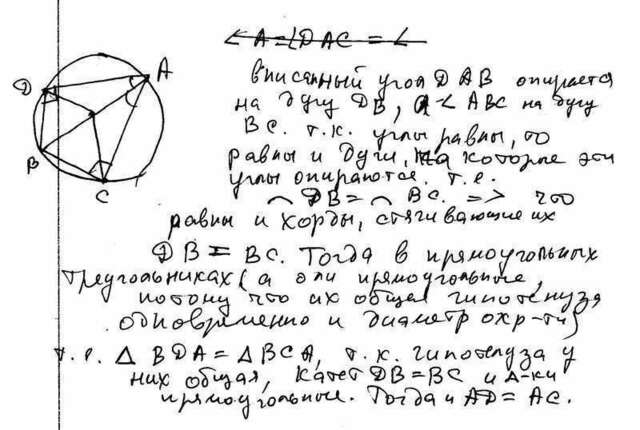 ∠A=∠DAC = ∠
D
A
B
C
вписанный угол DAB опирается
на дугу DB, а ∠ABC на дугу
BC. т.к. углы равны, то
равны и дуги, на которые эти
углы опираются. т.е.
⌢ DB = ⌢ BC. => что
равны и хорды, стягивающие их
DB = BC. Тогда в прямоугольных
треугольниках (а они прямоугольные,
потому что их общая гипотенуза
одновременно и диаметр окр-ти)
т.е. △ BDA = △BCA, т.к. гипотенуза у
них общая, катет DB=BC и △-ки
прямоугольные. Тогда и AD= AC.